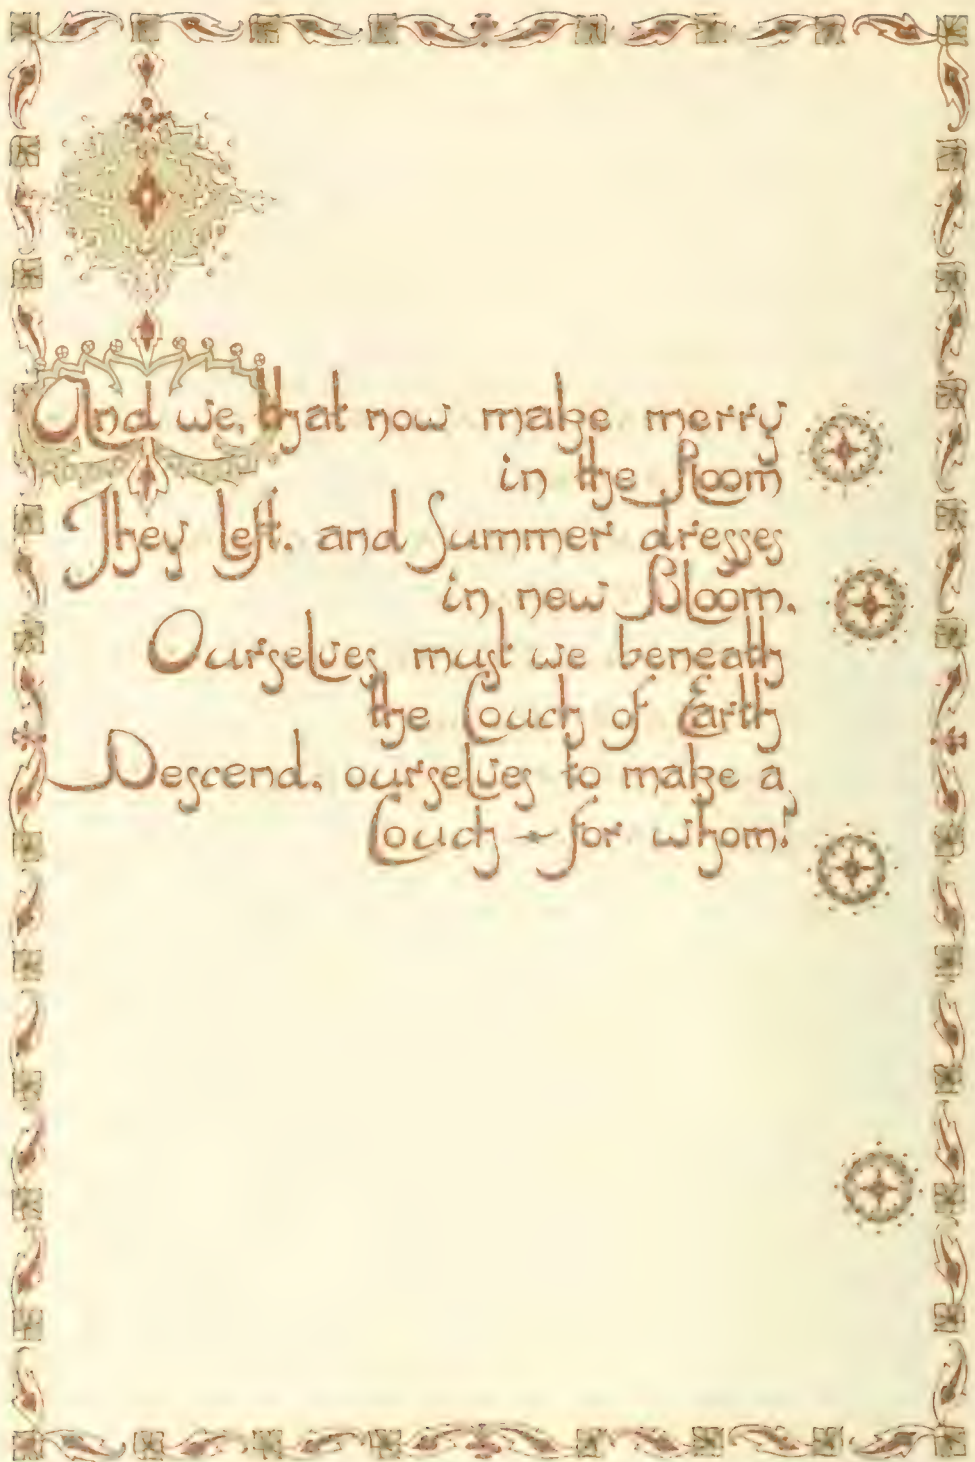 And we, that now make merry
in the Room
They left, and Summer dresses
in new Bloom,
Ourselves must we beneath
the Couch of Earth
Descend, ourselves to make a
Couch - for whom?